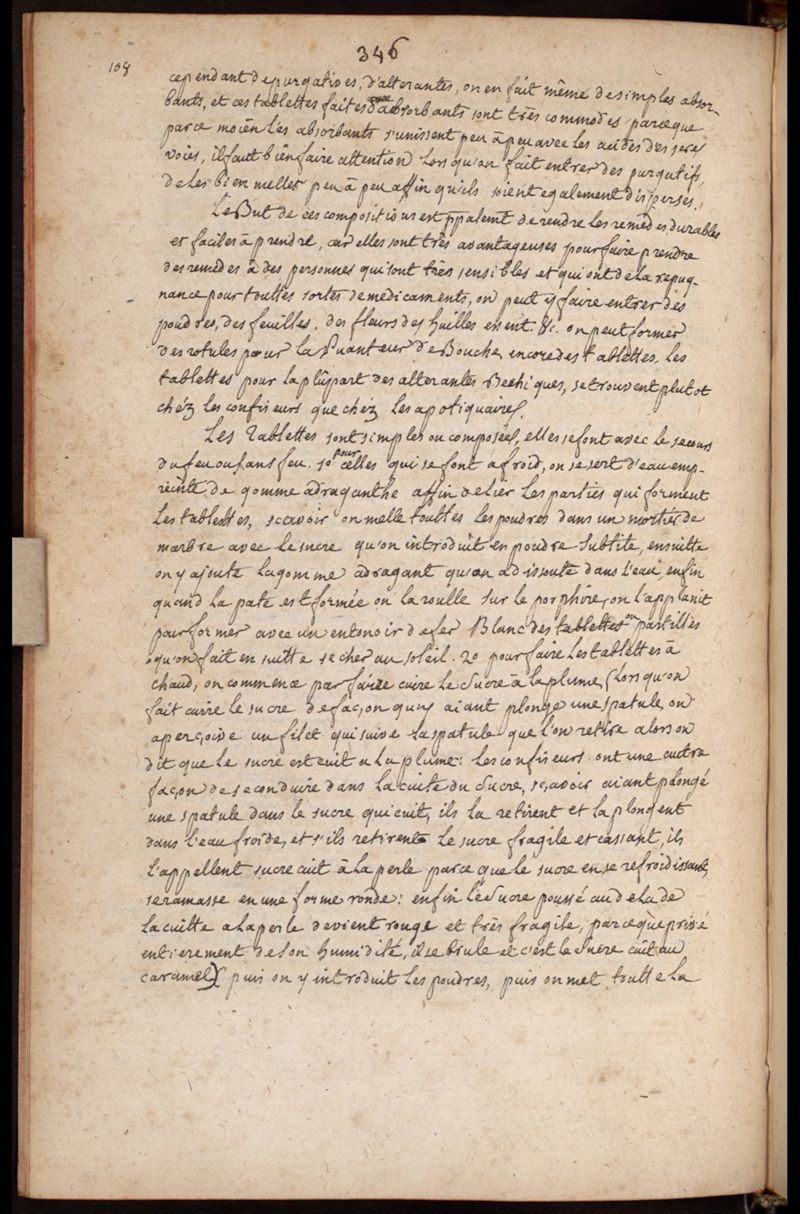 346
108
cependant de purgatives, d'alterantes, on en fait même de simples absor-
bants, et ces tablettes faites avec d'absorbants sont très commodes parceque
par ce moïen les absorbants s'unissent peu à peu avec les acides des 1eres
voies, il faut bien faire attention lorsqu'on fait entrer des purgatifs,
de les bien meller peu à peu affin qu'ils soient egalement disperses.
Le But de ces compositions est ppalemt de rendre les remèdes durables
et faciles à prendre, car elles sont très avantageuses pour faire prendre
des remèdes à des personnes qui sont très sensibles et qui ont de la repug-
nance pour touttes sortes de medicaments, on peut y faire entrer des
poudres, des feuilles, des fleurs des huilles essent. &c. on peut former
des rotules pour la Puanteur de Bouche, encore des tablettes. Les
tablettes pour la plûpart des alterantes Bechiques, se trouvent plutot
chéz les confiseurs que chéz les apotiquaires.
Les Tablettes sont simples ou composées, elles se font avec le secours
du feu ou sans feu. 1o pour celles qui se font a froid, on se sert d'eau emp-
reinte de gomme adraganthe affin de lier les parties qui forment
les tablettes, scavoir on melle touttes les poudres dans un mortier de
marbre avec le sucre qu'on introduit en poudre subtile, ensuitte
on y ajoute la gomme adragant qu'on a dissoute dans l'eau, enfin
quand la pate est formée on la roulle sur le porphire, on l'applanit
pour former avec un entonoir de fer Blanc des tablettes ou pastilles
qu'on fait en suitte secher au soleil. 2o pour faire les tablettes à
chaud, on commence par faire cuire le sucre à la plume, (lors qu'on
fait cuire le sucre de façon qu'y aiant plongé une spatule, on
aperçoive un filet qui suive la spatule que l'on retire alors on
dit que le sucre est cuit a la plume: les confiseurs ont une autre
façon de se conduire dans la cuite du sucre, sçavoir aiant plongé
une spatule dans le sucre qui cuit, ils la retirent et la plongent
dans l'eau froide, et s'ils retirent le sucre fragile et cassant, ils
l'appellent sucre cuit à la perle parce que le sucre en se refroidissant,
se ramasse en une forme ronde: enfin le sucre poussé au dela de
la cuitte a la perle devient rouge et très fragile, parceque privé
entierement de son humidité, il se brule et c'est le sucre cuit au
caramel) puis on y introduit les poudres, puis on met toutte la